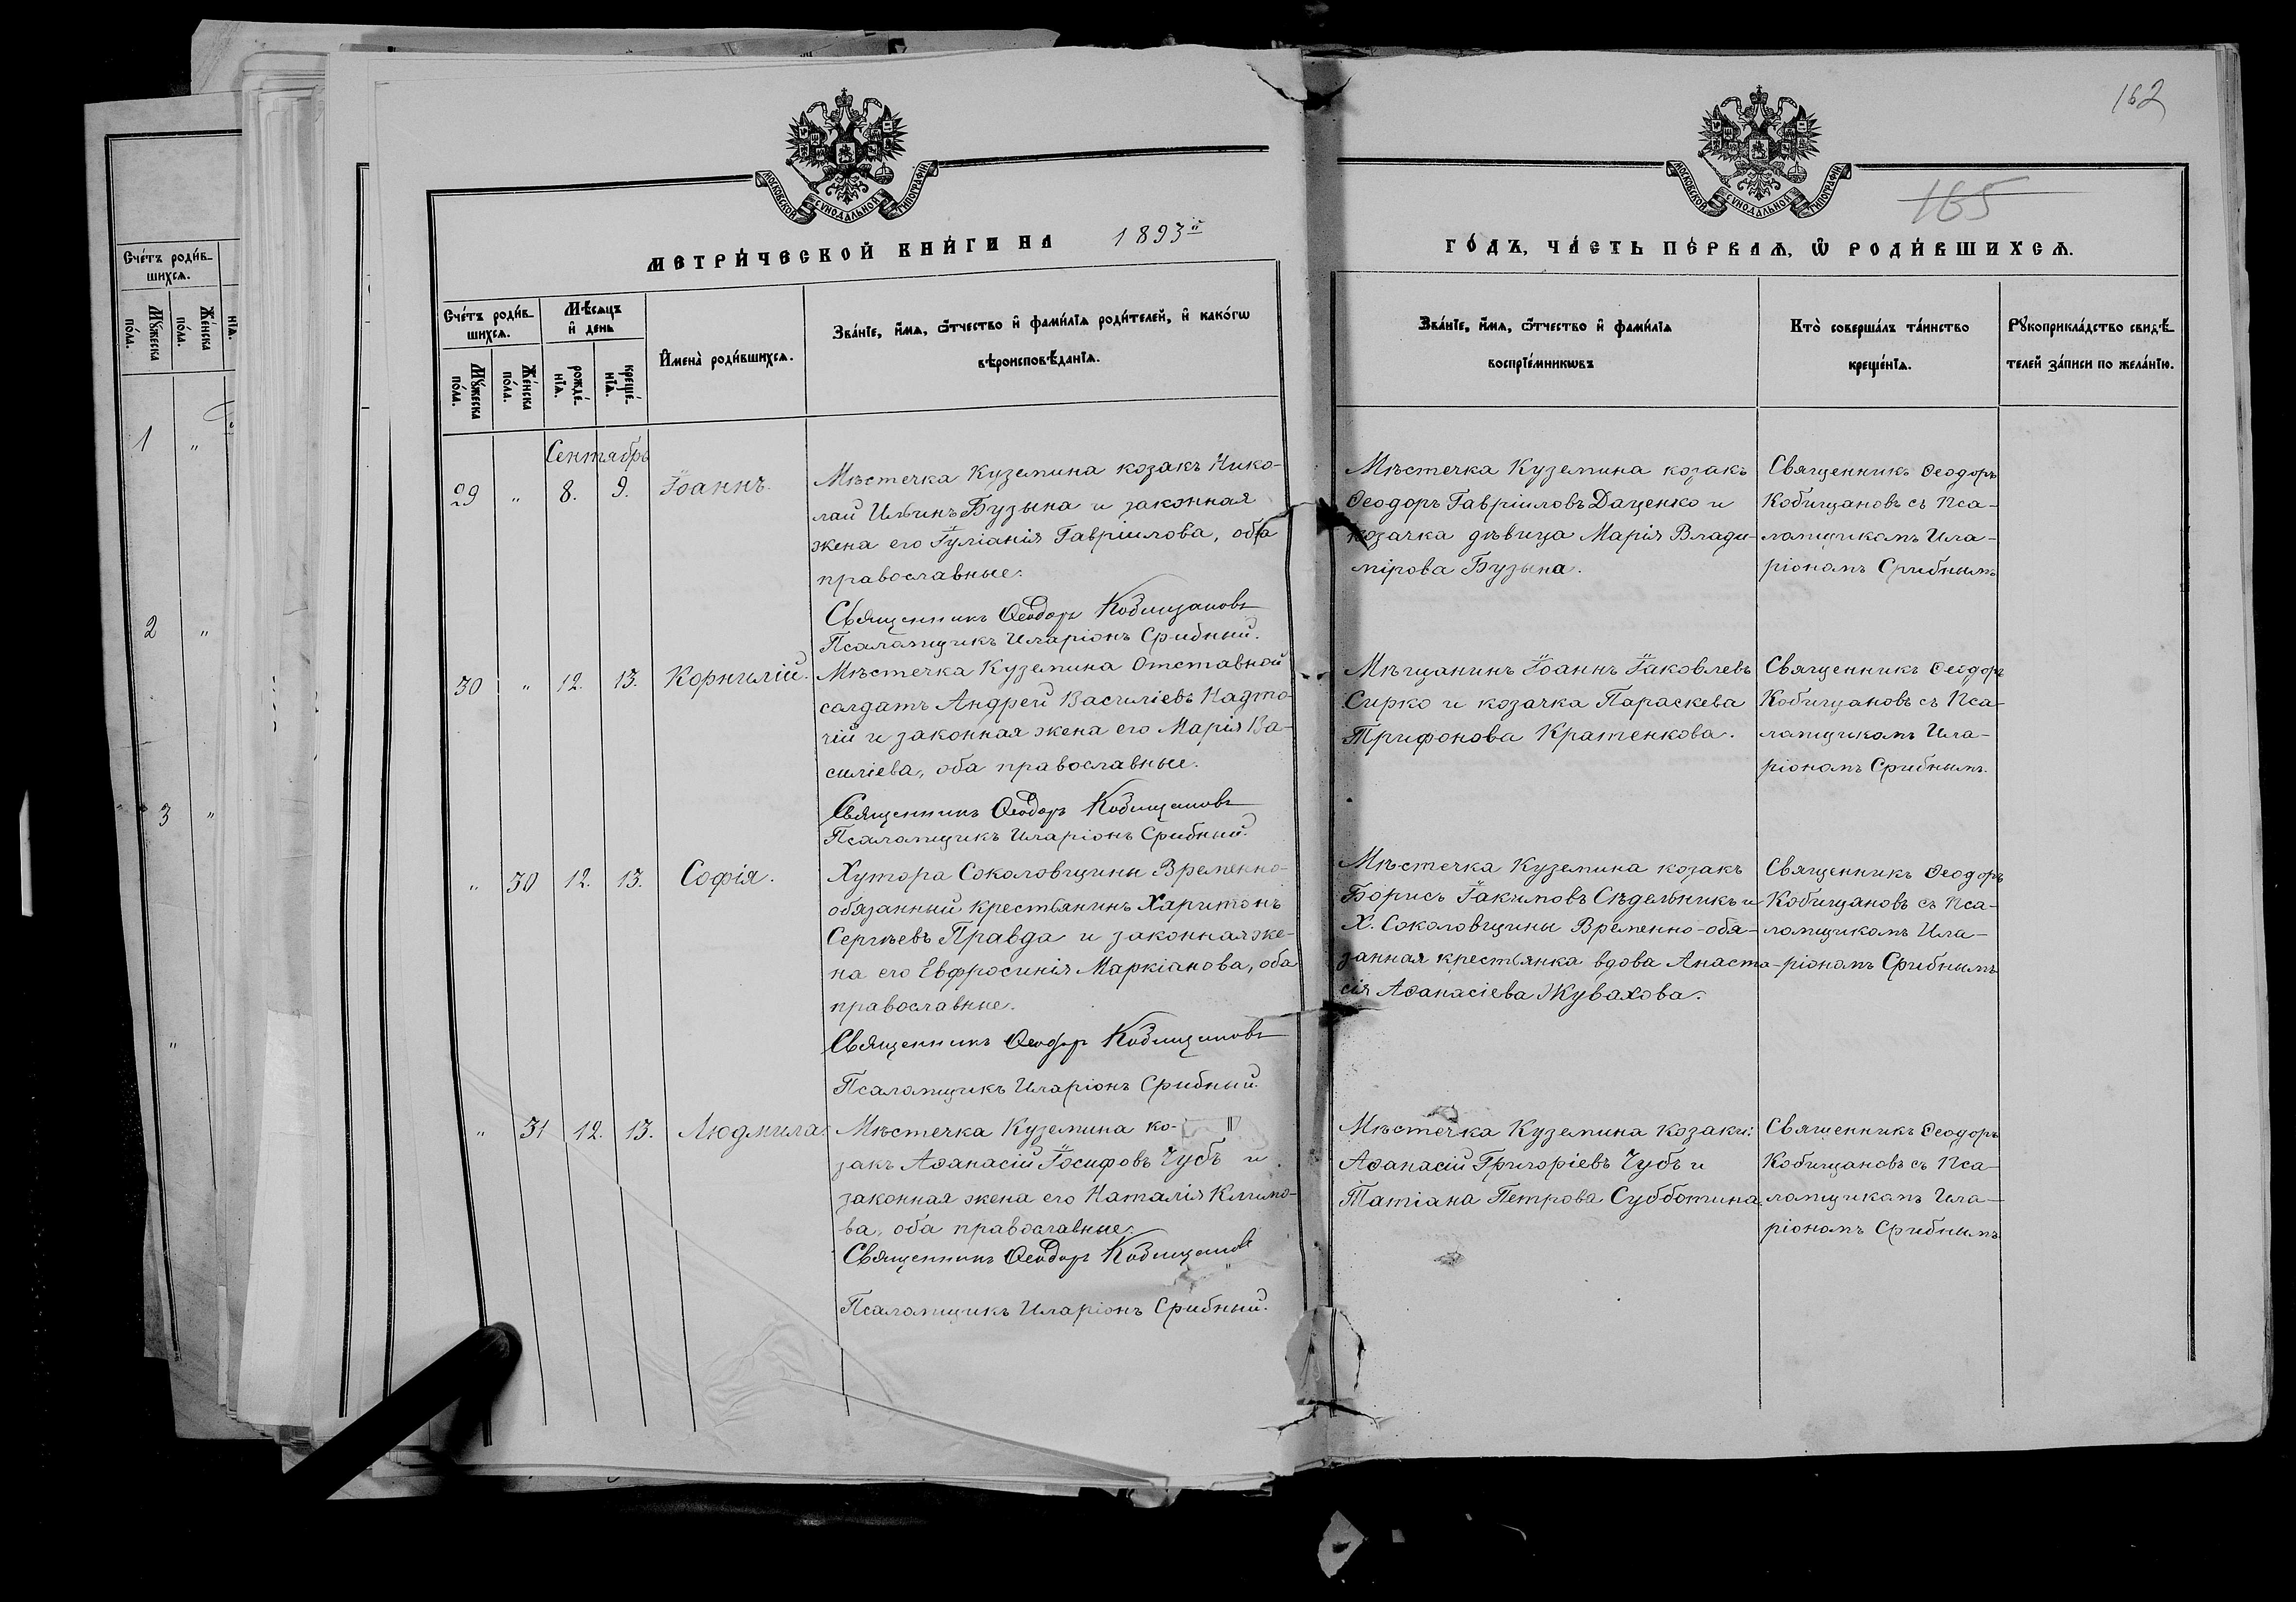 162
165
МОСКОВСКОЙ СУНОДАЛЬНОЙ ТИПОГРАФІИ.
МОСКОВСКОЙ СУНОДАЛЬНОЙ ТИПОГРАФІИ.
МЕТРИ́ЧЕСКОЙ КНИ́ГИ НА 1893й
ГО́ДЪ, ЧА́СТЬ ПЕ́РВАѦ, Ѡ҆ РОДИ́ВШИХСѦ.
Сче́тъ роди́в-
шихсѧ.
Мꙋ́жеска
по́ла.
Же́нска
по́ла.
1 „
2 „
3 „
„
Сче́тъ роди́в-
шихсѧ.
Мꙋ́жеска
по́ла.
Же́нска
по́ла.
Мѣ́сяцъ
и҆ день
рожде́-
нїѧ.
креще́-
нїѧ.
И҆мена̀ роди́вшихсѧ.
Зва́нїе, и҆́мѧ, ѻ҆́тчество и҆ фами́лїѧ роди́телей, и҆ како́гѡ
вѣроисповѣ́данїѧ.
Зва́нїе, и҆́мѧ, ѻ҆́тчество и҆ фами́лїѧ
воспрїе́мникѡвъ
Кто̀ соверша́лъ та́инство
креще́нїѧ.
Рꙋкоприкла́дство свидѣ́-
телей за́писи по жела́нїю.
Сентябрь
29 „ 8. 9. Іоаннъ.
Мѣстечка Куземина козакъ Нико-
лай Ильинъ Бузына и законная
жена его Іуліанія Гавріилова, оба
православные.
Священникъ Ѳеодоръ Кобищановъ
Псаломщикъ Иларіонъ Срибный.
Мѣстечка Куземина козакъ
Ѳеодоръ Гавріиловъ Даценко и
козачка дѣвица Марія Влади-
мірова Бузына.
Священникъ Ѳеодоръ
Кобищановъ съ Пса-
ломщикомъ Ила-
ріономъ Срибнымъ
30 „ 12. 13. Корнилій.
Мѣстечка Куземина Отставной
солдатъ Андрей Василіевъ Надто-
чій и законная жена его Марія Ва-
силіева, оба православные.
Священникъ Ѳеодоръ Кобищановъ
Псаломщикъ Иларіонъ Срибный.
Мѣщанинъ Іоаннъ Іаковлевъ
Сирко и козачка Параскева
Трифонова Кратенкова.
Священникъ Ѳеодоръ
Кобищановъ съ Пса-
ломщикомъ Ила-
ріономъ Срибнымъ.
„ 30 12. 13. Софія.
Хутора Соколовщины Временно-
обязанный крестьянинъ Харитонъ
Сергѣевъ Правда и законная же-
на его Евфросинія Маркіанова, оба
православные.
Священникъ Ѳеодоръ Кобищановъ
Псаломщикъ Иларіонъ Срибный.
Мѣстечка Куземина козакъ
Борисъ Іакимовъ Сѣдельникъ и
Х. Соколовщины Временно-обя-
занная крестьянка вдова Анаста-
сія Аѳанасіева Жувахова.
Священникъ Ѳеодоръ
Кобищановъ съ Пса-
ломщикомъ Ила-
ріономъ Срибнымъ
„ 31 12. 13. Людмила.
Мѣстечка Куземина ко- ||
закъ Аѳанасій Іосифовъ Чубъ и
законная жена его Наталія Климо-
ва, оба православные.
Священникъ Ѳеодоръ Кобищановъ
Псаломщикъ Иларіонъ Срибный.
Мѣстечка Куземина козаки:
Аѳанасій Григоріевъ Чубъ и
Татіана Петрова Субботина.
Священникъ Ѳеодоръ
Кобищановъ съ Пса-
ломщикомъ Ила-
ріономъ Срибнымъ